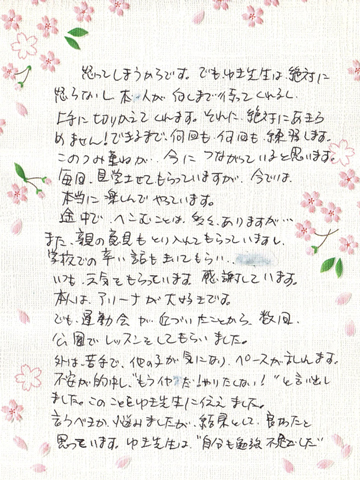 怒ってしまうからです。でもゆき先生は絶対に
怒らないし本人が 何しまで待ってくれるし、
上手に切りかえてくれます。それに、絶対にあきら
めません！できるまで、何回も、何回も、練習します。
このつみ重ねが、今に つながっていると思います。
毎回、見学させてもらっていますが、今では、
本当に楽しんでやっています。
途中で、へこむことは、多々、ありますが…
また、親の意見もとり入れてもらっていますし、
学校での辛い話も きいてもらい、
いつも、元気をもらっています。感謝しています。
本人は、アリーナが大好きです。
でも、運動会が近づいたことから、数回、
公園でレッスンをしてもらいました。
外は、苦手で、他の子が気になり、ペースが乱れます。
不安が的中し、"もうイヤだ！やりたくない！"と言い出し
ました。このことをゆき先生に伝えました。
言うべきか、悩みましたが、結果として、良かったと
思っています。ゆき先生は、"自分も勉強不足でした"